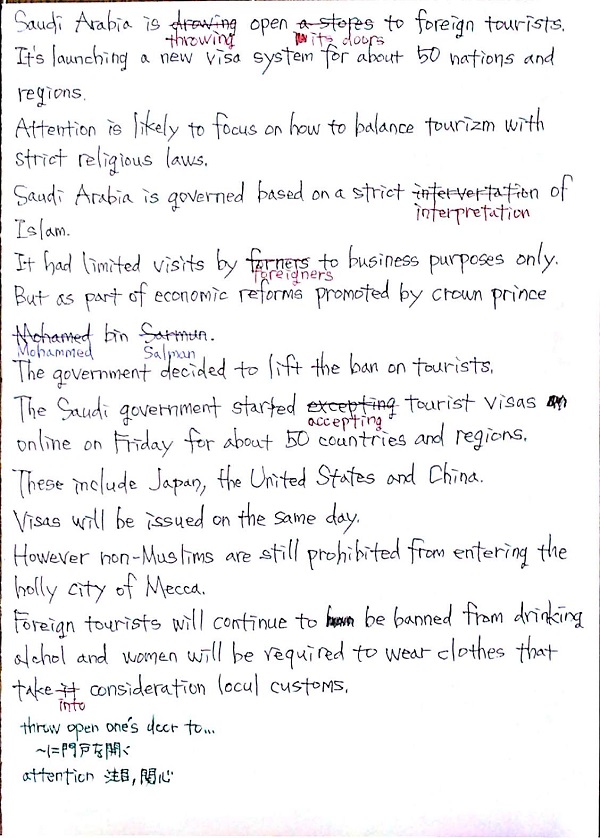 Saudi Arabia is drowing open a stopes to foreign tourists.
throwing its doors
It's launching a new visa system for about 50 nations and
regions.
Attention is likely to focus on how to balance tourizm with
strict religious laws.
Saudi Arabia is governed based on a strict intervertation of
interpretation
Islam.
It had limited visits by forners to business purposes only.
foreigners
But as part of economic reforms promoted by crown prince
Mohamed bin Sarmun.
Mohammed Salman
The government decided to lift the ban on tourists.
The Saudi government started excepting tourist visas
accepting
online on Friday for about 50 countries and regions.
These include Japan, the United States and China.
Visas will be issued on the same day.
However non-Muslims are still prohibited from entering the
holly city of Mecca.
Foreign tourists will continue to be banned from drinking
alchol and women will be required to wear clothes that
take it consideration locul customs.
into
throw open one's door to...
～に門戸を開く
attention 注目, 関心